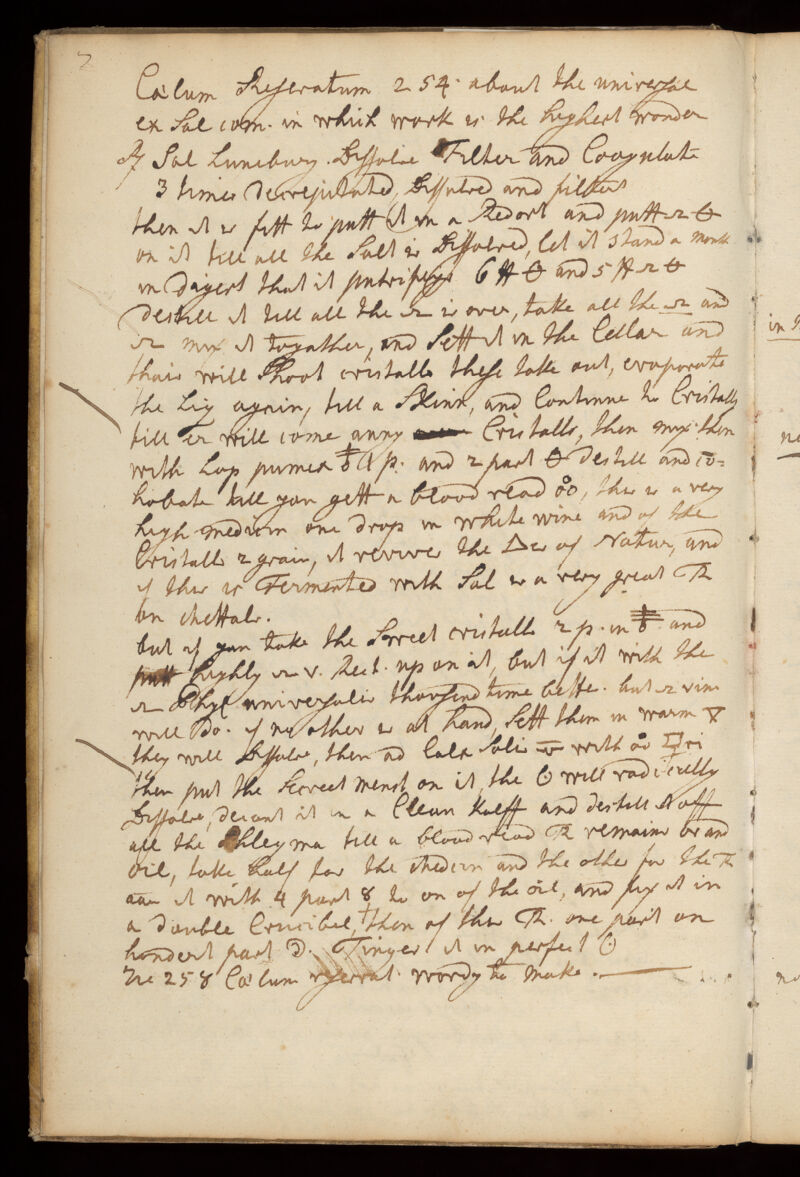 7
Cœlum Reseratum 254. about the universal
ex Sal com. in which work is the highest wonder
℞ Sal Luneburg. Dissolve Filter and Coagulate
3 times decrepitated, Dissolved and filtert
then it is fitt to putt it in a Redort and putt
on it till all the Salt is Dissolved, let it stand a month
in digest that it putrifys 6 ℔ and 5 ℔
Destill it till all the is over, take all the and
mix it together, and Sett it in the Cellar and
thair will Shoot cristalls these take out, evaporate
the Liq again, till a Skinn, and Continue to Cristally
till er will come anny Cristalls, then mix them
with Lap pumex p. and 2 part destill and co-
hobate till you gett a blood read, this is a very
high medicin one drop in white wine and of the
Cristalls 2 grain, it revives the △er of Natur, and
if this is Fermented with Sol is a very great
on Mettals.
but if you take the Sweet cristalls 2 p. in and
highly v. Rect. up on it, but if it with the
universalis thousend time bette. but vini
will Do. if no other is at hand, Sett them in warm ▽
they will Dissolve, then ad Calx Solis with
then put the Secreet menst on it, the ☉ will radically
Dissolve, decant it in a Clean Kolff and destill it off
all the Phlegma till a blood read remains or and
Oil, take half for the Medicin and the other for the
it with 4 part ☿ to on of the oil, and fix it in
a double Crucibel, then of this one part on
hondert part ☽. Tinges it in perfect ☉
258 Cœlum reserat. wordy to make.